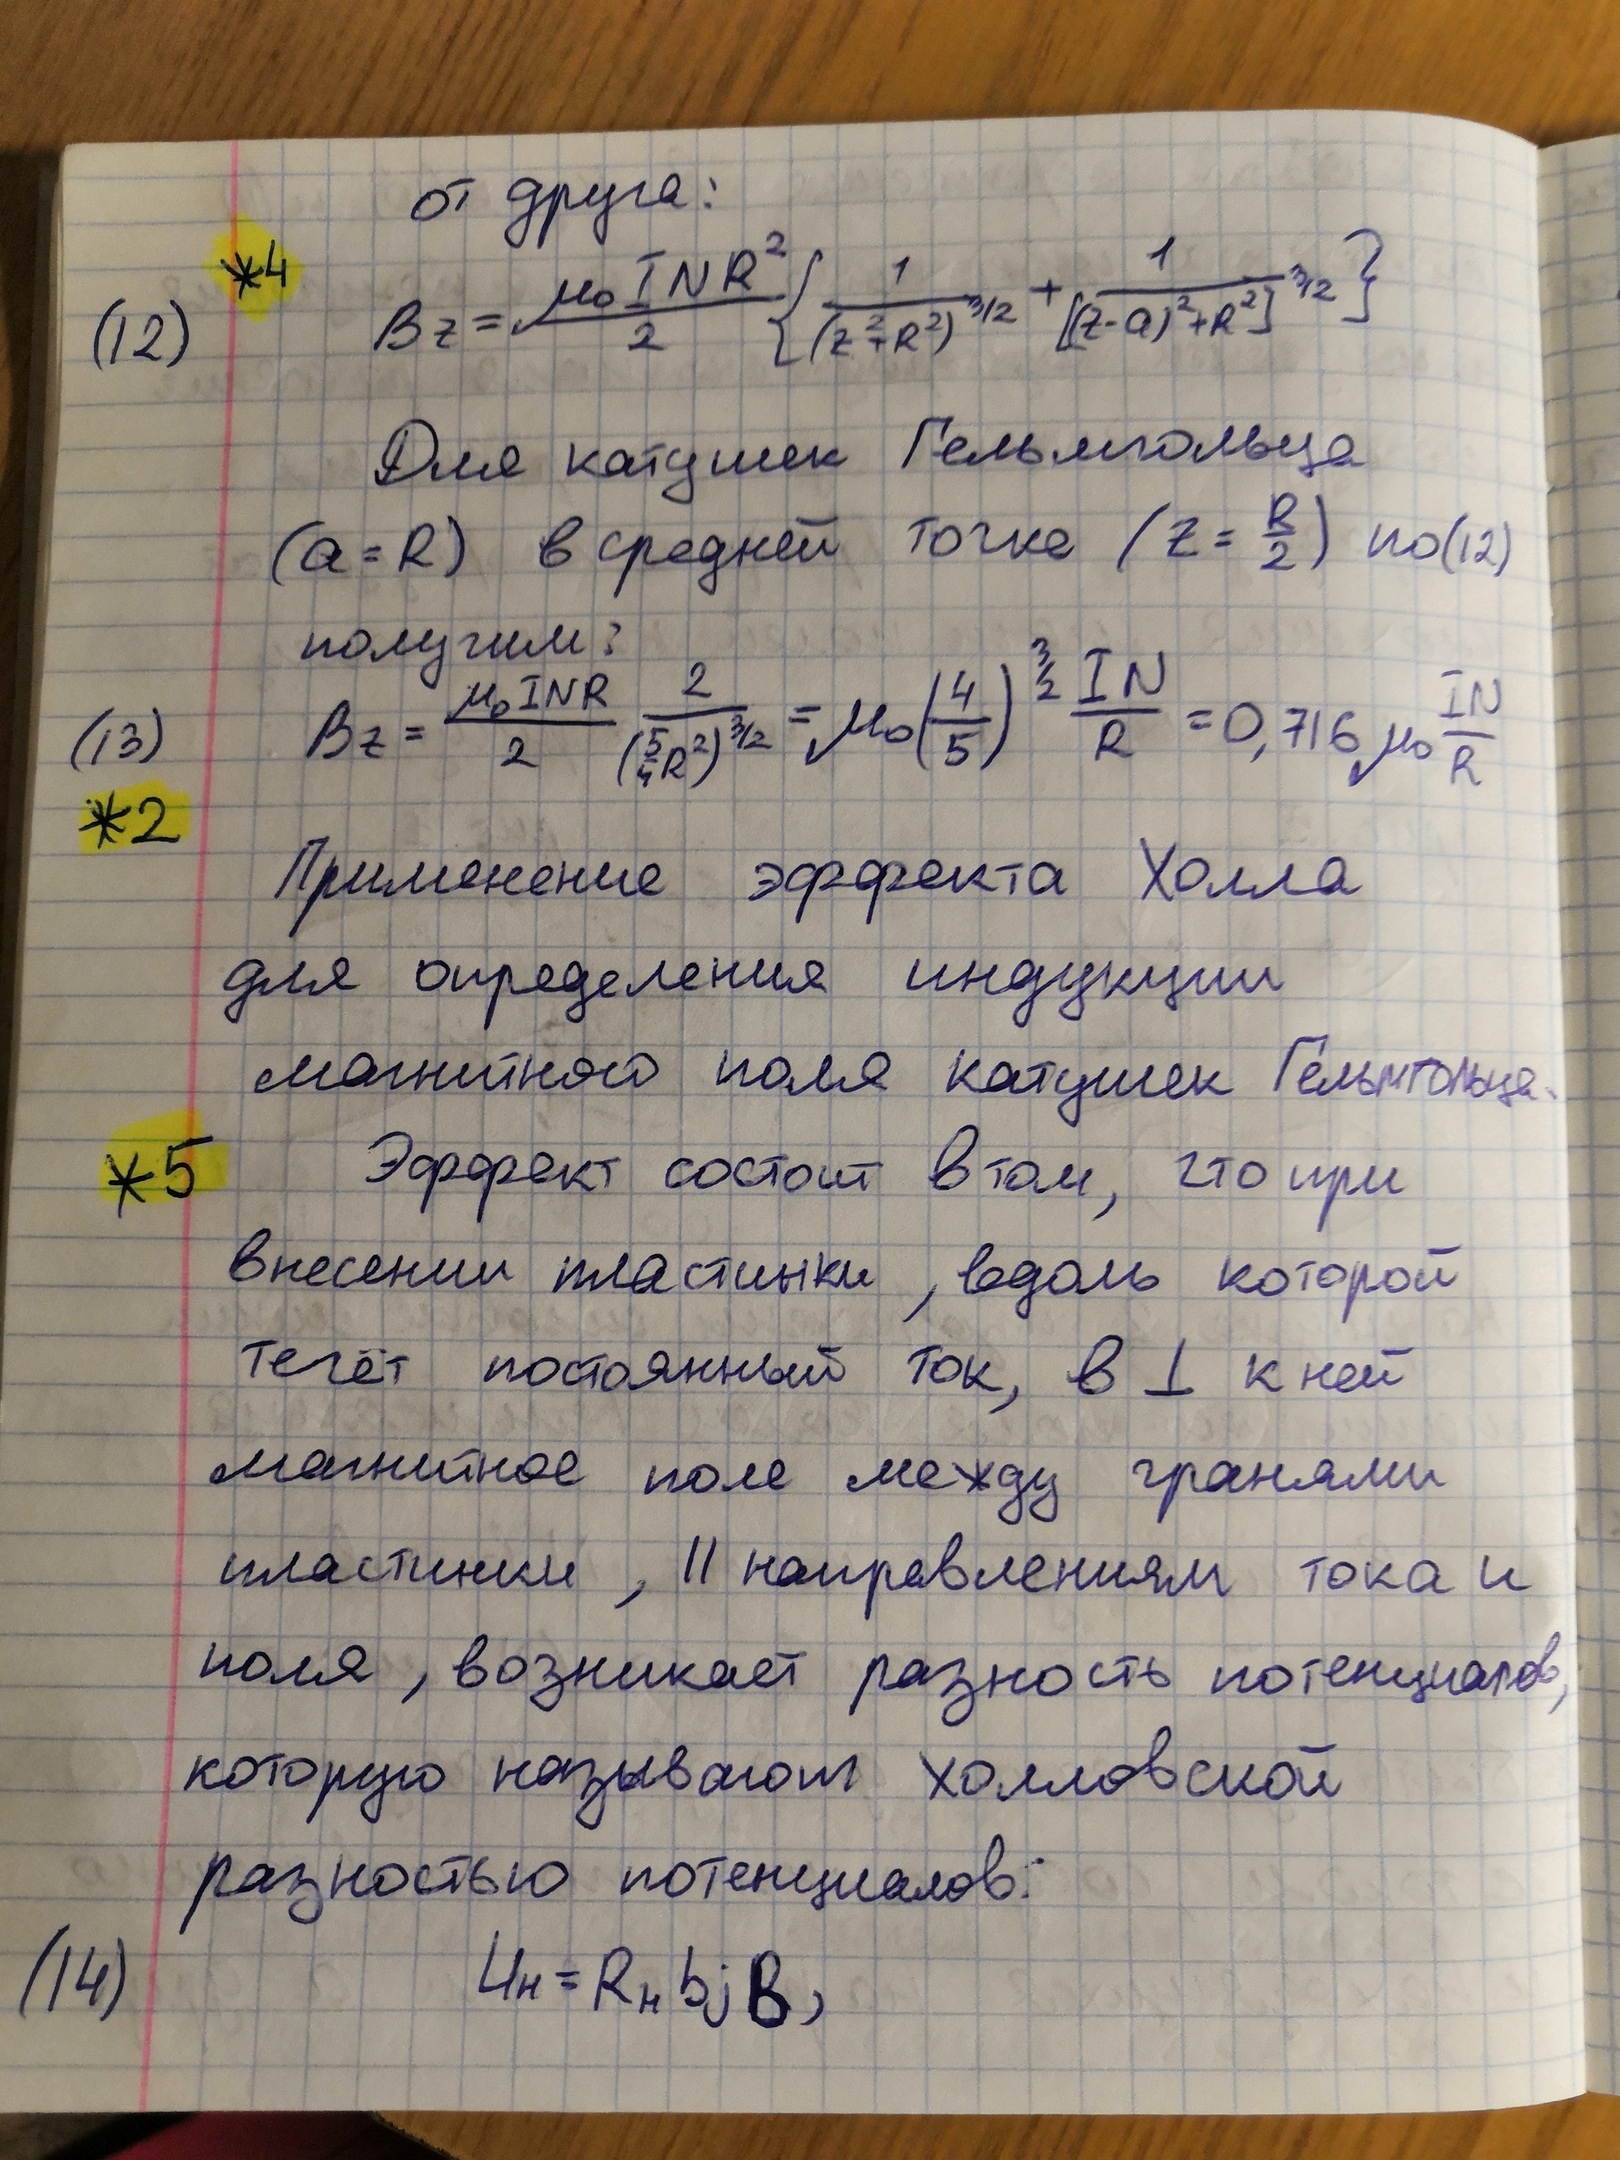 от друга:
*4
(12) Bz = μ₀INR²/2 {1/(z²+R²)^3/2 + 1/[(z-a)²+R²]^3/2}
Для катушек Гельмгольца
(a=R) в средней точке (z=R/2) по(12)
получим:
(13) Bz = μ₀INR/2 2/(5/4R²)^3/2 = μ₀(4/5)^3/2 IN/R = 0,716μ₀ IN/R
*2
Применение эффекта Холла
для определения индукции
магнитного поля катушек Гельмгольца.
*5 Эффект состоит в том, что при
внесении пластинки, вдоль которой
течёт постоянный ток, в ⊥ к ней
магнитное поле между гранями
пластинки, || направлениям тока и
поля, возникает разность потенциалов,
которую называют холловской
разностью потенциалов:
(14) Uн = RнbjB,